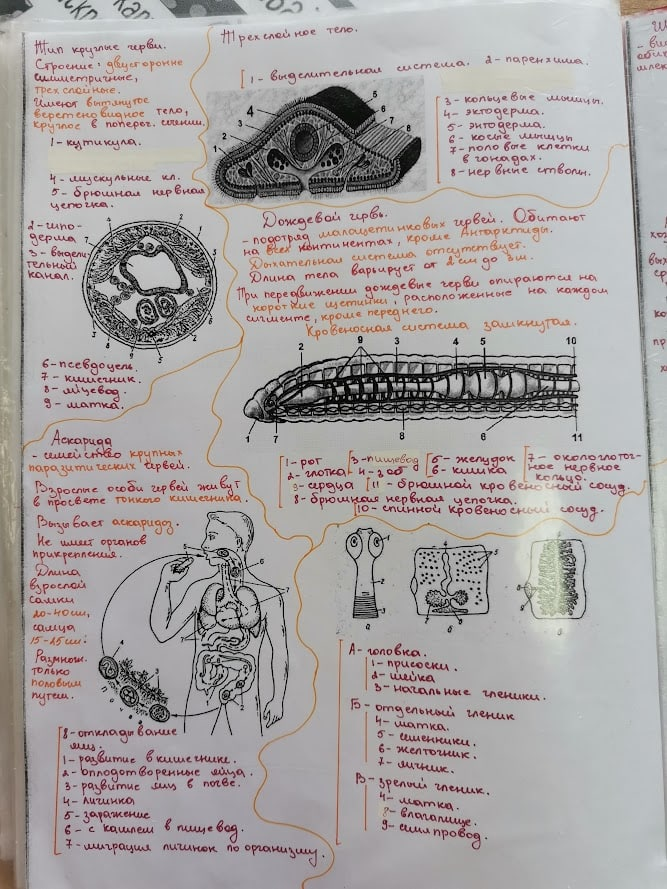 Тип круглые черви.
Строение: двусторонне
симметричные,
трехслойные.
Имеют вытянутое
веретеновидное тело,
круглое в попереч. сечении.
1 - кутикула.
4 - мускульные кл.
5 - брюшная нервная
цепочка.
2 - гипо-
дерма
3 - выдели-
тельный
канал.
6 - псевдоцель.
7 - кишечник.
8 - яйцевод.
9 - матка.
Трехслойное тело.
1 - выделительная система. 2 - паренхима.
3 - кольцевые мышцы.
4 - эктодерма.
5 - энтодерма.
6 - косые мышцы
7 - половые клетки
в гонадах.
8 - нервные стволы.
Дождевой червь.
- подотряд малощетинковых червей. Обитают
на всех континентах, кроме Антарктиды.
Дыхательная система отсутствует.
Длина тела варьирует от 2 см до 3 м.
При передвижении дождевые черви опираются на
короткие щетинки, расположенные на каждом
сигменте, кроме переднего.
Кровеносная система замкнутая.
2 9 3 4 5 10
1 7 8 6 11
1 - рот
2 - глотка
9 - сердца
3 - пищевод
4 - зоб
5 - желудок
6 - кишка
7 - окологлоточ-
ное нервное
кольцо.
11 - брюшной кровеносный сосуд.
8 - брюшная нервная цепочка.
10 - спинной кровеносный сосуд.
Аскарида
- семейство крупных
паразитических червей.
Взрослые особи червей живут
в просвете тонкого кишечника.
Вызывает аскаридоз.
Не имеет органов
прикрепления.
Длина
взрослой
самки
20-40 см,
самца
15-25 см.
Размнож.
только
половым
путем.
почва
8 - откладывание
яиц.
1 - развитие в кишечнике.
2 - оплодотворенные яйца.
3 - развитие яиц в почве.
4 - личинка
5 - заражение
6 - с кашлем в пищевод.
7 - миграция личинок по организму.
А - головка.
1 - присоски.
2 - шейка
3 - начальные членики.
Б - отдельный членик
4 - матка.
5 - семенники.
6 - желточник.
7 - яичник.
В - зрелый членик.
4 - матка.
8 - влагалище.
9 - семяпровод.